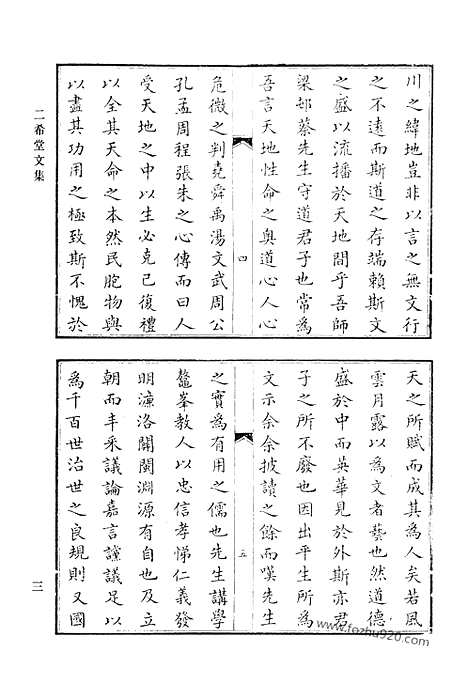 川之緯地豈非以言之無文行
之不遠而斯道之存端賴斯文
之盛以流播於天地間乎吾師
梁邨蔡先生守道君子也常為
吾言天地性命之奧道心人心
四
危微之判堯舜禹湯文武周公
孔孟周程張朱之心傳而曰人
受天地之中以生必克己復禮
以全其天命之本然民胞物與
以盡其功用之極致斯不愧於
天之所賦而成其為人矣若風
雲月露以為文者藝也然道德
盛於中而英華見於外斯亦君
子之所不廢也因出平生所為
文示余余披讀之餘而嘆先生
五
之實為有用之儒也先生講學
鼇峯教人以忠信孝悌仁義發
明濂洛關閩淵源有自及立
朝而丰采議論嘉言讜議足以
為千百世治世之良規則又國
二希堂文集
三
www.fozhu920.com